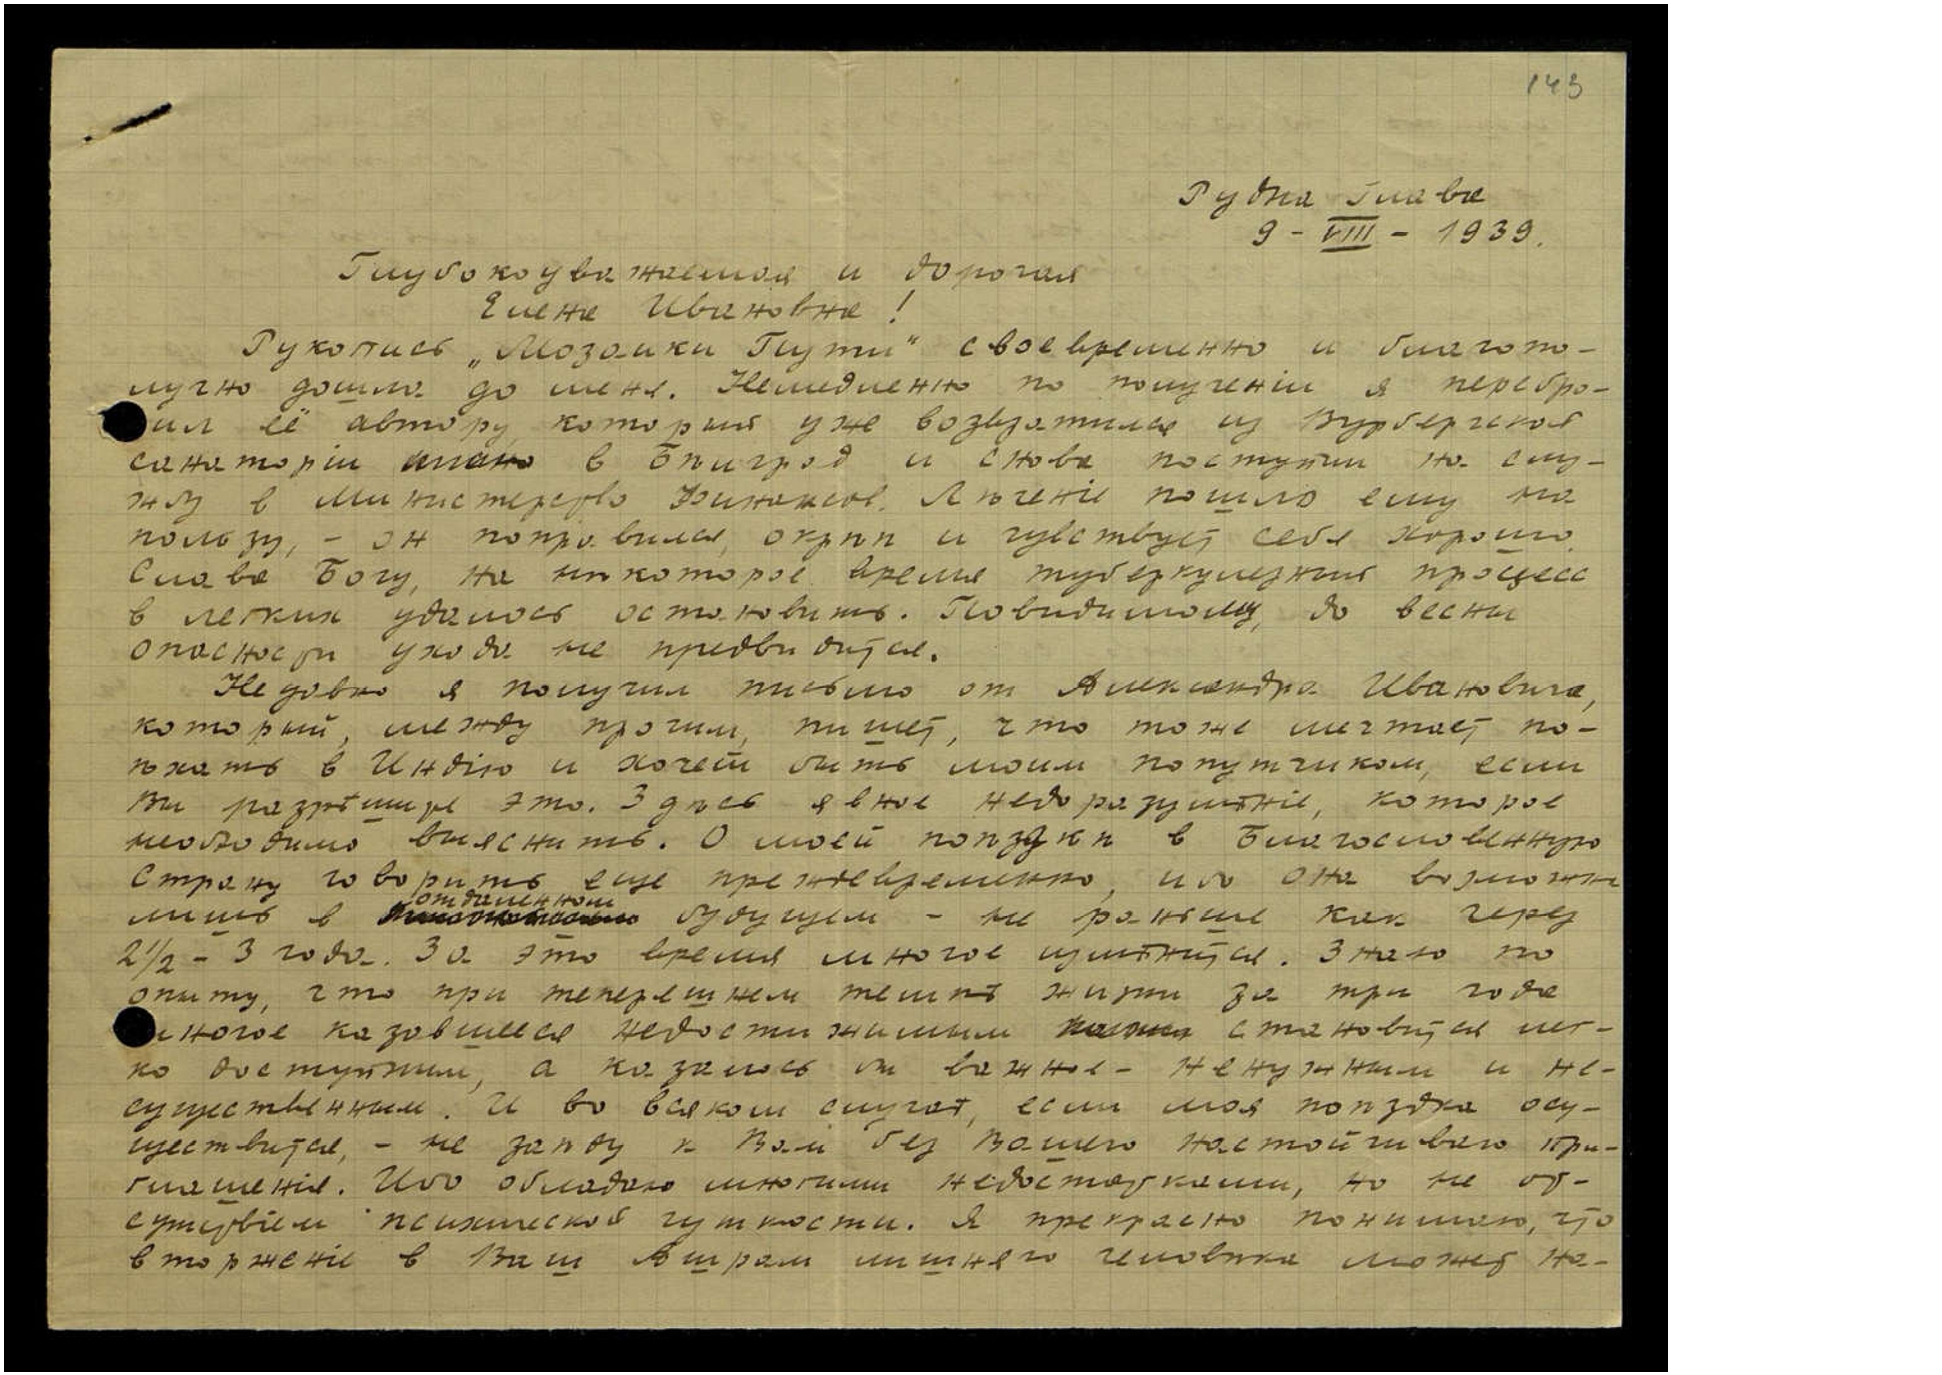 143
Рудна Глава
9 - VIII - 1939.
Глубокоуважаемая и дорогая
Елена Ивановна!
Рукопись „Мозаики Пути" своевременно и благопо-
лучно дошла до меня. Немедленно по полученіи я перебро-
сил её автору, который уже возвратился из Вурбергской
санаторіи в Бѣлград и снова поступил на слу-
жбу в Министерство Финансов. Лѣченіе пошло ему на
пользу, - он поправился, окрѣп и чувствует себя хорошо.
Слава Богу, на нѣкоторое время туберкулезный процесс
в легких удалось остановить. Повидимому, до весны
опасности ухода не предвидится.
Недавно я получил письмо от Александра Ивановича,
который, между прочим, пишет, что тоже мечтает по-
ѣхать в Индію и хочет быть моим попутчиком, если
Вы разрѣшите это. Здѣсь явное недоразумѣніе, которое
необходимо выяснить. О моей поѣздкѣ в Благословенную
Страну говорить еще преждевременно, ибо она возможна
отдаленном
лишь в будущем - не раньше как через
2 1/2 - 3 года. За это время многое измѣнится. Знаю по
опыту, что при теперешнем темпѣ жизни за три года
многое казавшееся недостижимым становится лег-
ко доступным, а казалось бы важное - ненужным и не-
существенным. И во всяком случаѣ, если моя поѣздка осу-
ществится, - не заѣду к Вам без Вашего настойчиваго при-
глашенія. Ибо обладаю многими недостатками, но не от-
сутствіем психической чуткости. Я прекрасно понимаю, что
вторженіе в Ваш Ашрам лишняго человѣка может на-